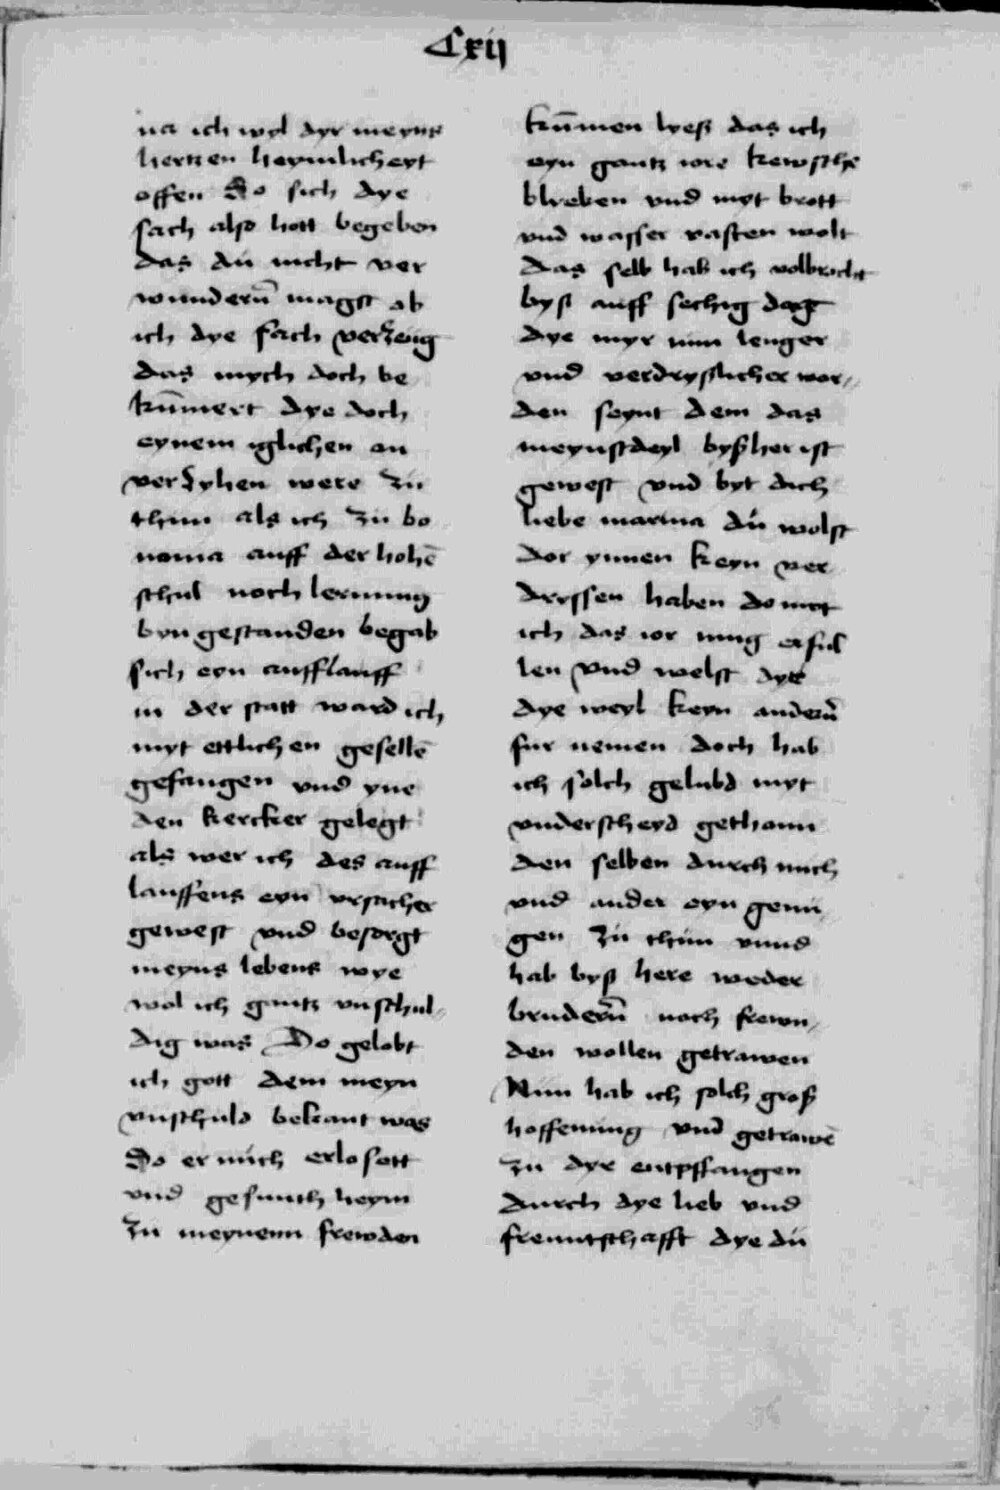 Cxij
na ich wyl dyr meyns
hertzen heymlicheyt
offen So sich dye
sach also hott begeben
das du nicht ver
wundern̄ magst ab
ich dye sach verzeug
das mych doch be
kum̄ert dye doch
eynem iglichen an
verzyhen were zu
thun als ich zu bo
nonia auff der hohē
schul noch lernung
byn gestanden begab
sich eyn aufflauff
in der statt ward ich
myt ettlichen gesellē
gefangen vnd yne
den kercker gelegt
als wer ich des auff
lauffens eyn vrsacher
gewest vnd besorgt
meyns lebens wye
wol ich gantz vnschul„
dig was Do gelobt
ich gott dem meyn
vnschuld bekant was
So er mich erlosett
vnd gesunth heym
zu meynenn frewden
kum̄en lyeß das ich
eyn gantz iore kewsche
blyeben vnd myt brott
vnd wasser vasten wolt
das selb hab ich volbrocht
byß auff sechig dag
dye myr nun lenger
vnd verdryslicher wor„
den seynt dem das
meynstdeyl byßher ist
gewest vnd byt dich
liebe marina du wolst
dor ynnen keyn ver
dryssen haben domit
ich das ior mug erful
len vnd welst dyr
dye weyl keyn andern̄
fur nemen doch hab
ich solch gelubd myt
vnderscheyd gethonn
den selben durch mich
vnd ander eyn genu„
gen zu thun vnnd
hab byß here weder
brudern̄ noch frewn„
den wollen getrawen
Nun hab ich solch groß
hoffenung vnd getrawē
zu dyr entpffangen
durch dye lieb vnd
freuntschafft dye du